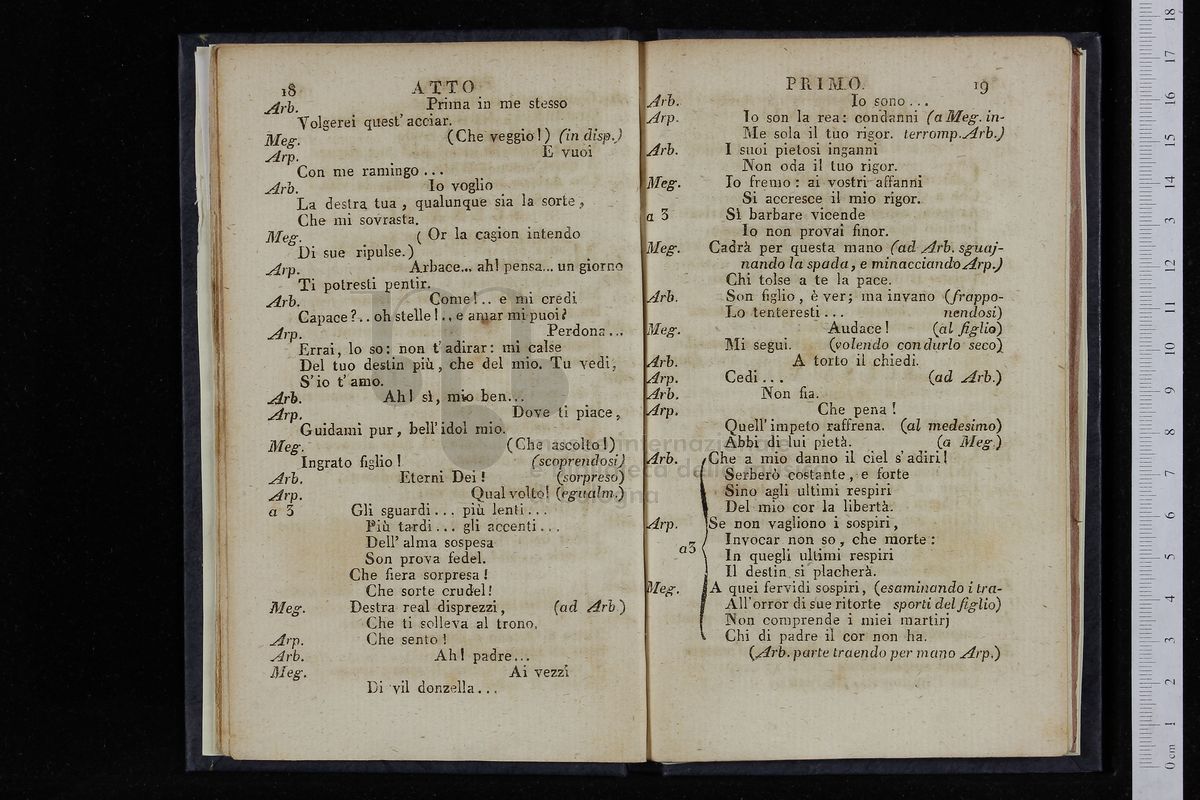 18 ATTO
Arb. Prima in me stesso
Volgerei quest' acciar.
Meg. (Che veggio!) (in disp.)
Arp. E vuoi
Con me ramingo ...
Arb. Io voglio
La destra tua, qualunque sia la sorte,
Che mi sovrasta.
Meg. (Or la cagion intendo
Di sue ripulse.)
Arp. Arbace... ah! pensa... un giorno
Ti potresti pentir.
Arb. Come!.. e mi credi
Capace?.. oh stelle!.. e amar mi puoi?
Arp. Perdona...
Errai, lo so: non t'adirar: mi calse
Del tuo destin più, che del mio. Tu vedi,
S'io t'amo.
Arb. Ah! sì, mio ben...
Arp. Dove ti piace,
Guidami pur, bell'idol mio.
Meg. (Che ascolto!)
Ingrato figlio! (scoprendosi)
Arb. Eterni Dei! (sorpreso)
Arp. Qual volto! (egualm.)
a 3 Gli sguardi... più lenti...
Più tardi... gli accenti...
Dell'alma sospesa
Son prova fedel.
Che fiera sorpresa!
Che sorte crudel!
Meg. Destra real disprezzi, (ad Arb)
Che ti solleva al trono,
Arp. Che sento!
Arb. Ah! padre...
Meg. Ai vezzi
Di vil donzella...
PRIMO. 19
Arb. Io sono...
Arp. Io son la rea: condanni (a Meg. in-
Me sola il tuo rigor. terromp. Arb.)
Arb. I suoi pietosi inganni
Non oda il tuo rigor.
Meg. Io fremo: ai vostri affanni
Si accresce il mio rigor.
a 3 Sì barbare vicende
Io non provai finor.
Meg. Cadrà per questa mano (ad Arb. sguaj-
nando la spada, e minacciando Arp.)
Chi tolse a te la pace.
Arb. Son figlio, è ver; ma invano (frappo-
Lo tenteresti... nendosi)
Meg. Audace! (al figlio)
Mi segui. (volendo condurlo seco)
Arb. A torto il chiedi.
Arp. Cedi... (ad Arb.)
Arb. Non fia.
Arp. Che pena!
Quell'impeto raffrena. (al medesimo)
Abbi di lui pietà. (a Meg.)
Arb. Che a mio danno il ciel s'adiri!
Serberò costante, e forte
Sino agli ultimi respiri
Del mio cor la libertà.
Arp. Se non vagliono i sospiri,
Invocar non so, che morte:
a3 In quegli ultimi respiri
Il destin si placherà.
Meg. A quei fervidi sospiri, (esaminando i tra-
All'orror di sue ritorte sporti del figlio)
Non comprende i miei martirj
Chi di padre il cor non ha.
(Arb. parte traendo per mano Arp.)
0 cm 1 2 3 4 5 6 7 8 9 10 11 12 13 14 15 16 17 18